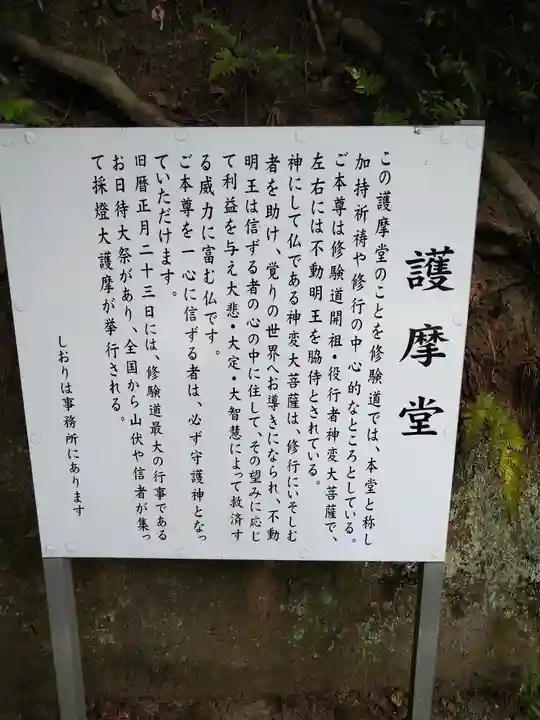 護摩堂
この護摩堂のことを修験道では、本堂と称し
加持祈祷や修行の中心的なところとしている。
ご本尊は修験道開祖・役行者神変大菩薩で、
左右には不動明王を脇侍とされている。
神にして仏である神変大菩薩は、修行にいそしむ
者を助け、覚りの世界へお導きになられ、不動
明王は信ずる者の心の中に住して、その望みに応じ
て利益を与え大悲・大定・大智慧によって救済す
る威力に富む仏です。
ご本尊を一心に信ずる者は、必ず守護神となっ
ていただけます。
旧暦正月二十三日には、修験道最大の行事である
お日待大祭があり、全国から山伏や信者が集っ
て採燈大護摩が挙行される。
しおりは事務所にあります